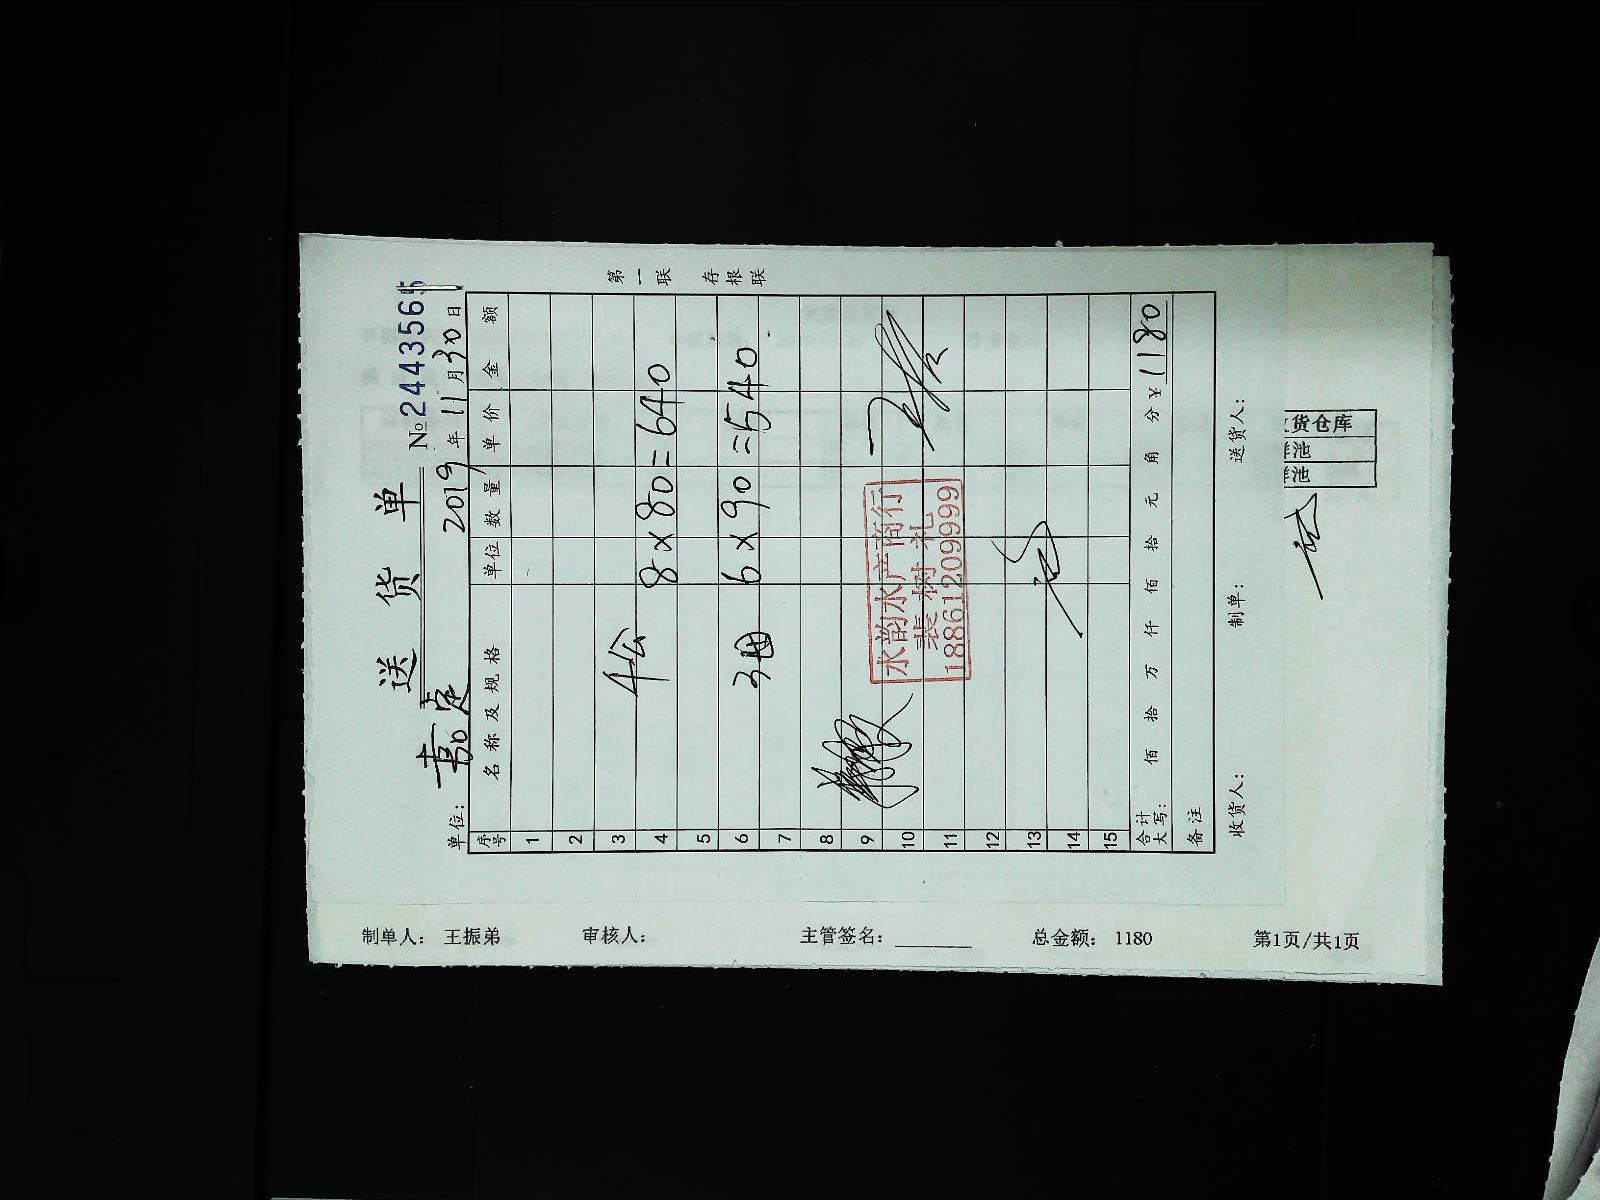 送货单
№2443565
单位：嘉定 2019年11月30日
序号 名称及规格 单位 数量 单价 金额
1
2
3 4公
4 8×80=640
5
6 3母 6×90=540
7
8
9
10
11
12
13
14
15
合计大写： 佰 拾 万 仟 佰 拾 元 角 分 ¥1180
备注
收货人： 制单： 送货人：
第一联 存根联
水韵水产商行
裴树礼
18861209999
货仓库
池
池
制单人： 王振弟 审核人： 主管签名： 总金额： 1180 第1页/共1页